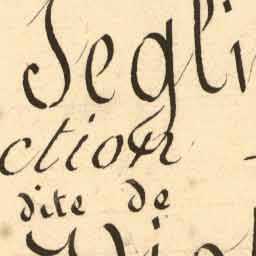 Segli
ction
dite de